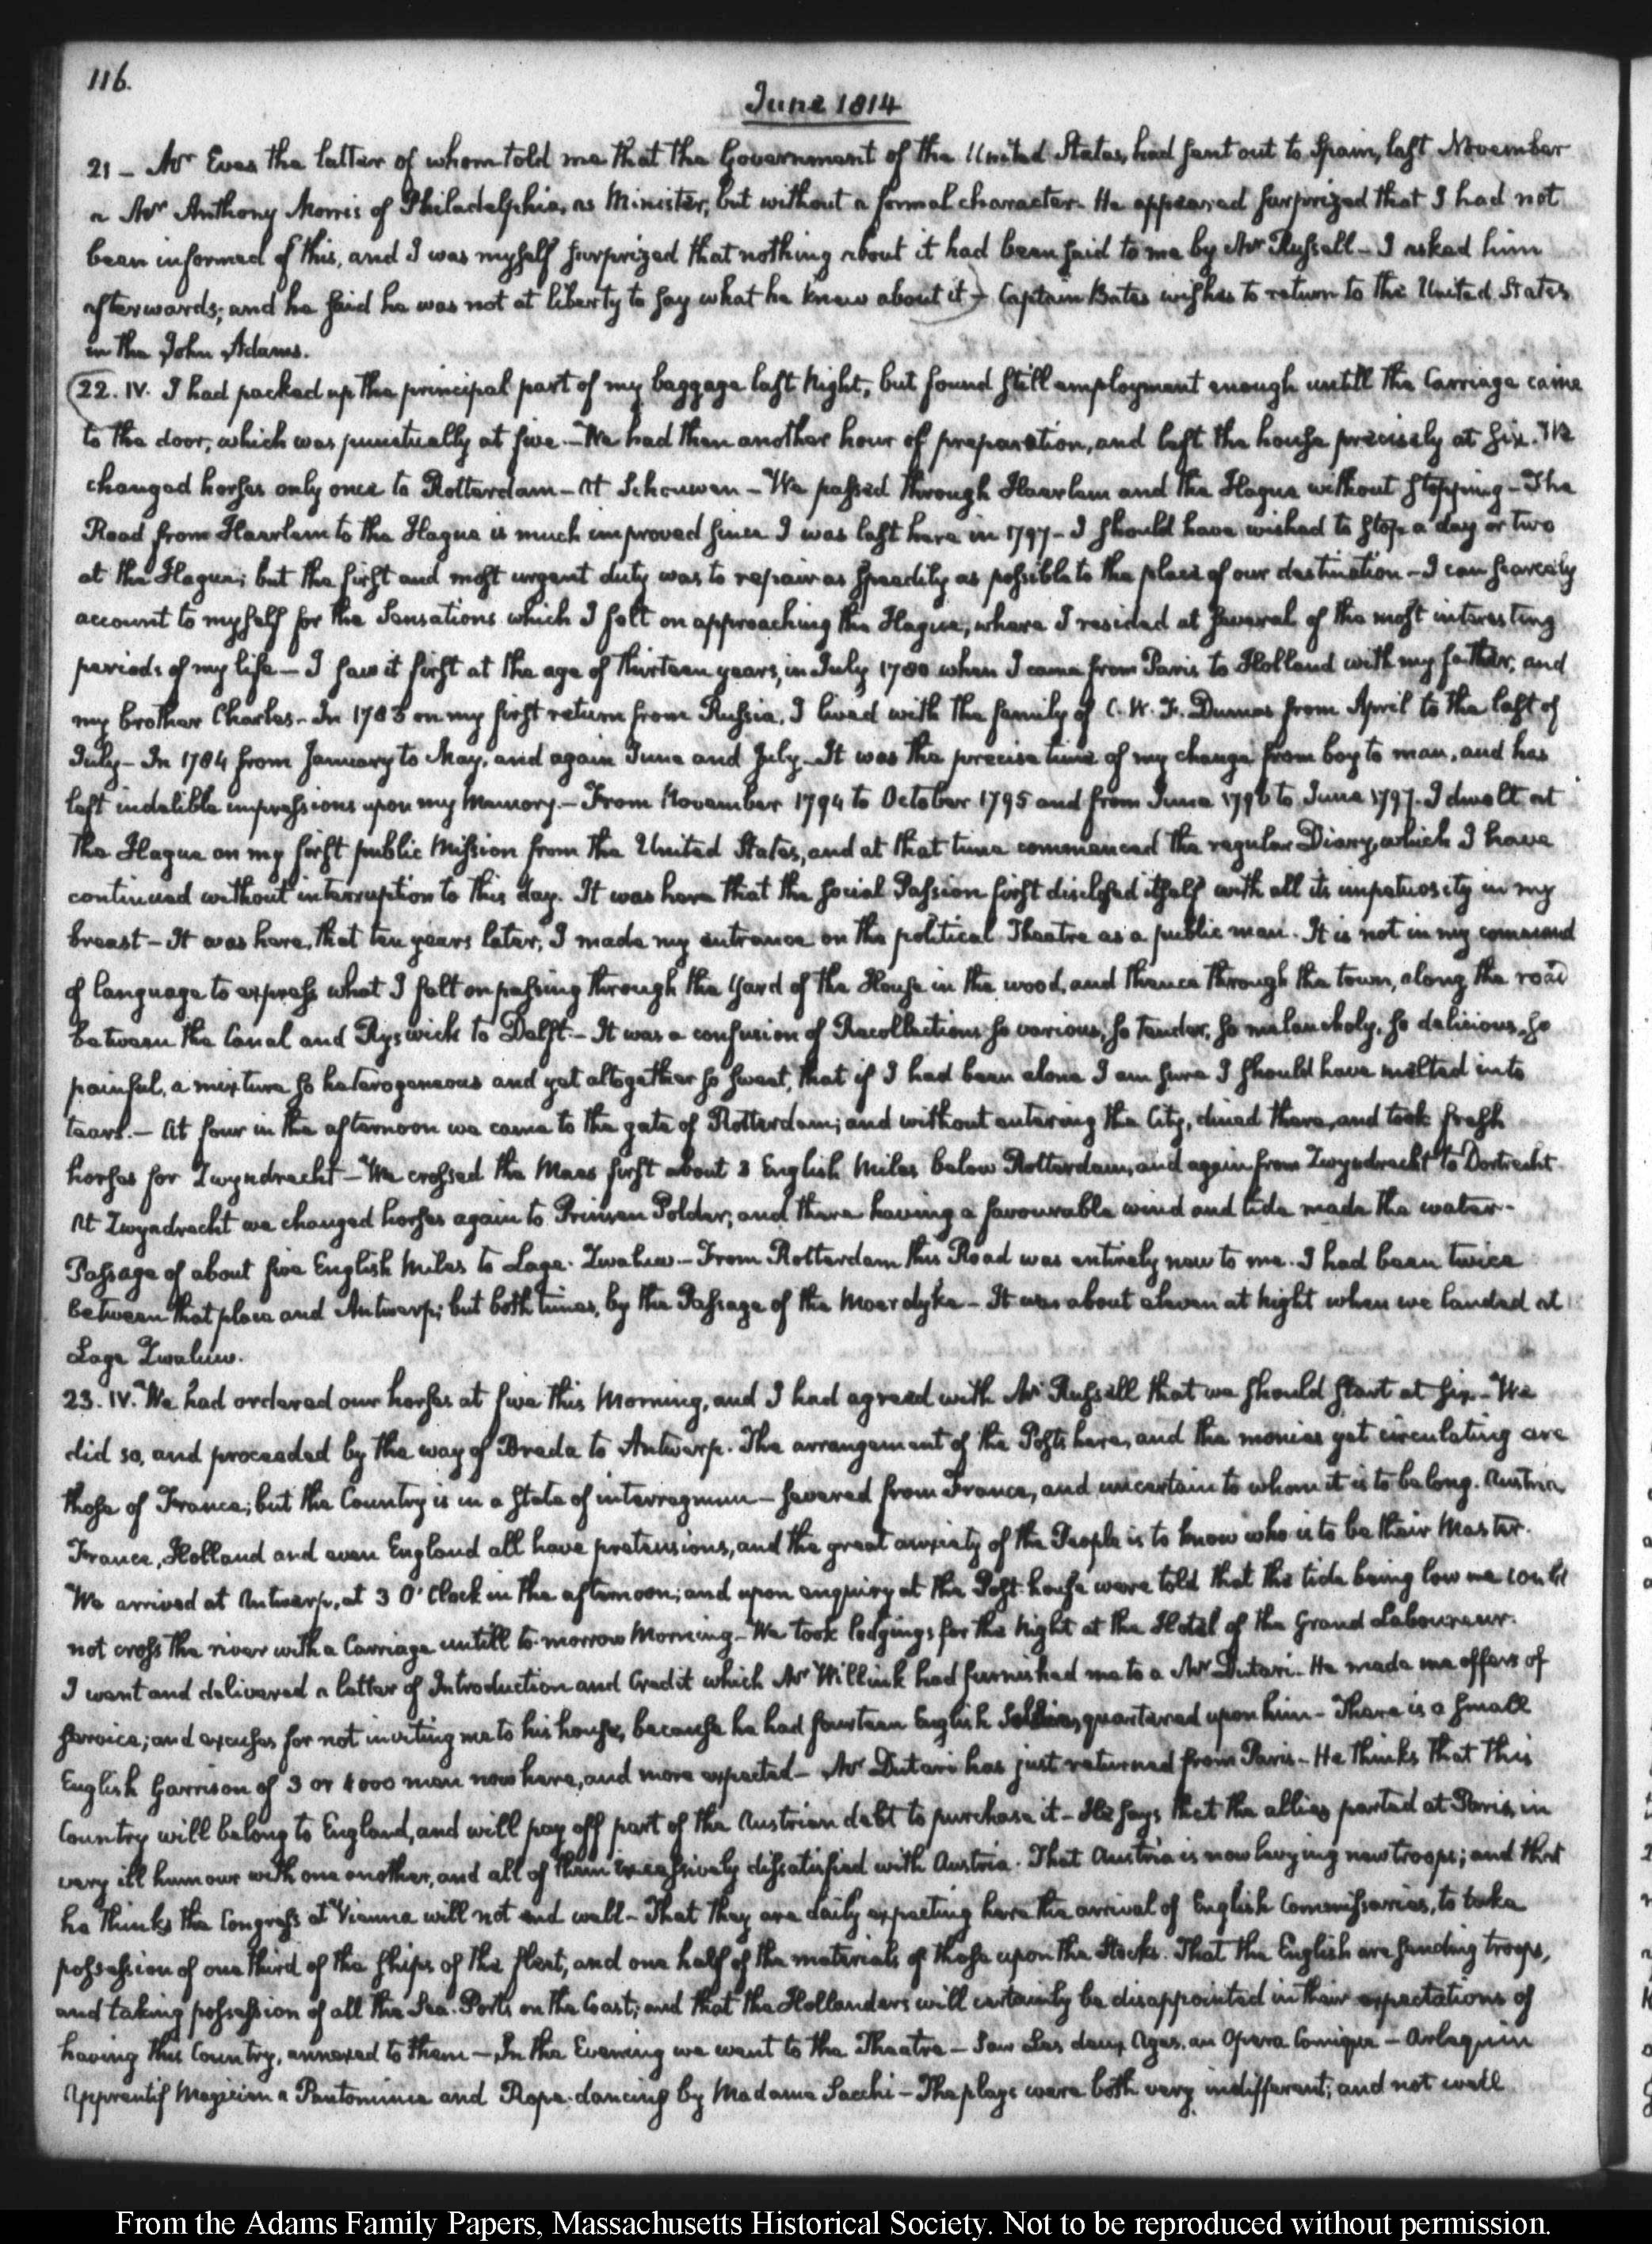 116.
June 1814
21 – Mr Eves the latter of whom told me that the Government of the United States, had sent out to Spain, last November
a Mr Anthony Morris of Philadelphia, as Minister, but without a formal character. He appeared surprized that I had not
been informed of this, and I was myself surprized that nothing about it had been said to me by Mr Russell – I asked him
afterwards; and he said he was not at liberty to say what he knew about it – Captain Bates wishes to return to the United States
in the John Adams.
22. IV. I had packed up the principal part of my baggage last Night, but found still employment enough untill the Carriage came
to the door, which was punctually at five. – We had then another hour of preparation, and left the house precisely at six. We
changed horses only once to Rotterdam – At Schouwen – We passed through Haarlem and the Hague without stopping – The
Road from Haarlem to the Hague is much improved since I was last here in 1797 – I should have wished to stop a day or two
at the Hague; but the first and most urgent duty was to repair as speedily as possible to the place of our destination – I can scarcely
account to myself for the Sensations which I felt on approaching the Hague, where I resided at several of the most interesting
periods of my life – I saw it first at the age of thirteen years, in July 1780 when I came from Paris to Holland with my father, and
my brother Charles – In 1783 on my first return from Russia, I lived with the family of C. W. F. Dumas from April to the last of
July – In 1784 from January to May, and again June and July – It was the precise time of my change from boy to man, and has
left indelible impressions upon my Memory. – From November 1794 to October 1795 and from June 1796 to June 1797. I dwelt at
the Hague on my first public Mission from the United States, and at that time commenced the regular Diary, which I have
continued without interruption to this day. It was here that the social Passion first disclosed itself with all its impetuosity in my
breast – It was here, that ten years later, I made my entrance on the political Theatre as a public man. It is not in my command
of language to express what I felt on passing through the yard of the House in the wood, and thence through the town, along the road
between the Canal and Ryswick to Delft – It was a confusion of Recollections so various, so tender, so melancholy, so delicious, so
painful, a mixture so heterogeneous and yet altogether so sweet, that if I had been alone I am sure I should have melted into
tears. – At four in the afternoon we came to the gate of Rotterdam; and without entering the City, dined there, and took fresh
horses for Zwyndrecht – We crossed the Maes first about 3 English Miles below Rotterdam, and again from Zwyndrecht to Dortrecht.
At Zwyndrecht we changed horses again to Prinsen Polder; and there having a favourable wind and tide made the water-
Passage of about five English Miles to Lage-Zwaluw – From Rotterdam this Road was entirely new to me. I had been twice
between that place and Antwerp; but both times, by the Passage of the Moerdyke – It was about eleven at Night when we landed at
Lage Zwaluw.
23. IV. We had ordered our horses at five this Morning, and I had agreed with Mr Russell that we should start at six – We
did so, and proceeded by the way of Breda to Antwerp. The arrangement of the Posts here, and the monies yet circulating are
those of France; but the Country is in a state of interregnum – severed from France, and uncertain to whom it is to belong. Austria
France, Holland and even England all have pretensions, and the great anxiety of the People is to know who is to be their Master.
We arrived at Antwerp, at 3 O'Clock in the afternoon; and upon enquiry at the Post-house were told that the tide being low we could
not cross the river with a Carriage untill to-morrow Morning – We took lodgings for the Night at the Hotel of the Grand Laboureur.
I went and delivered a letter of Introduction and Credit which Mr Willink had furnished me to a Mr Dutari. He made me offers of
service; and excuses for not inviting me to his house, because he had fourteen English Soldiers quartered upon him – There is a small
English Garrison of 3 or 4000 men now here, and more expected – Mr Dutari has just returned from Paris – He thinks that this
Country will belong to England, and will pay off part of the Austrian debt to purchase it – He says that the allies parted at Paris, in
very ill humour with one another, and all of them excessively dissatisfied with Austria. That Austria is now levying new troops; and that
he thinks the Congress at Vienna will not end well – That they are daily expecting here the arrival of English Commissaries, to take
possession of one third of the ships of the fleet, and one half of the materials of those upon the Stocks. That the English are sending troops,
and taking possession of all the Sea-Ports on the Coast; and that the Hollanders will certainly be disappointed in their expectations of
having this Country, annexed to them – In the Evening we went to the Theatre – Saw Les deux Ages. an Opera Comique – Arlequin
Apprentif Magicien a Pantomime and Rope-dancing by Madame Sacchi – The plays were both very indifferent; and not well
From the Adams Family Papers, Massachusetts Historical Society. Not to be reproduced without permission.